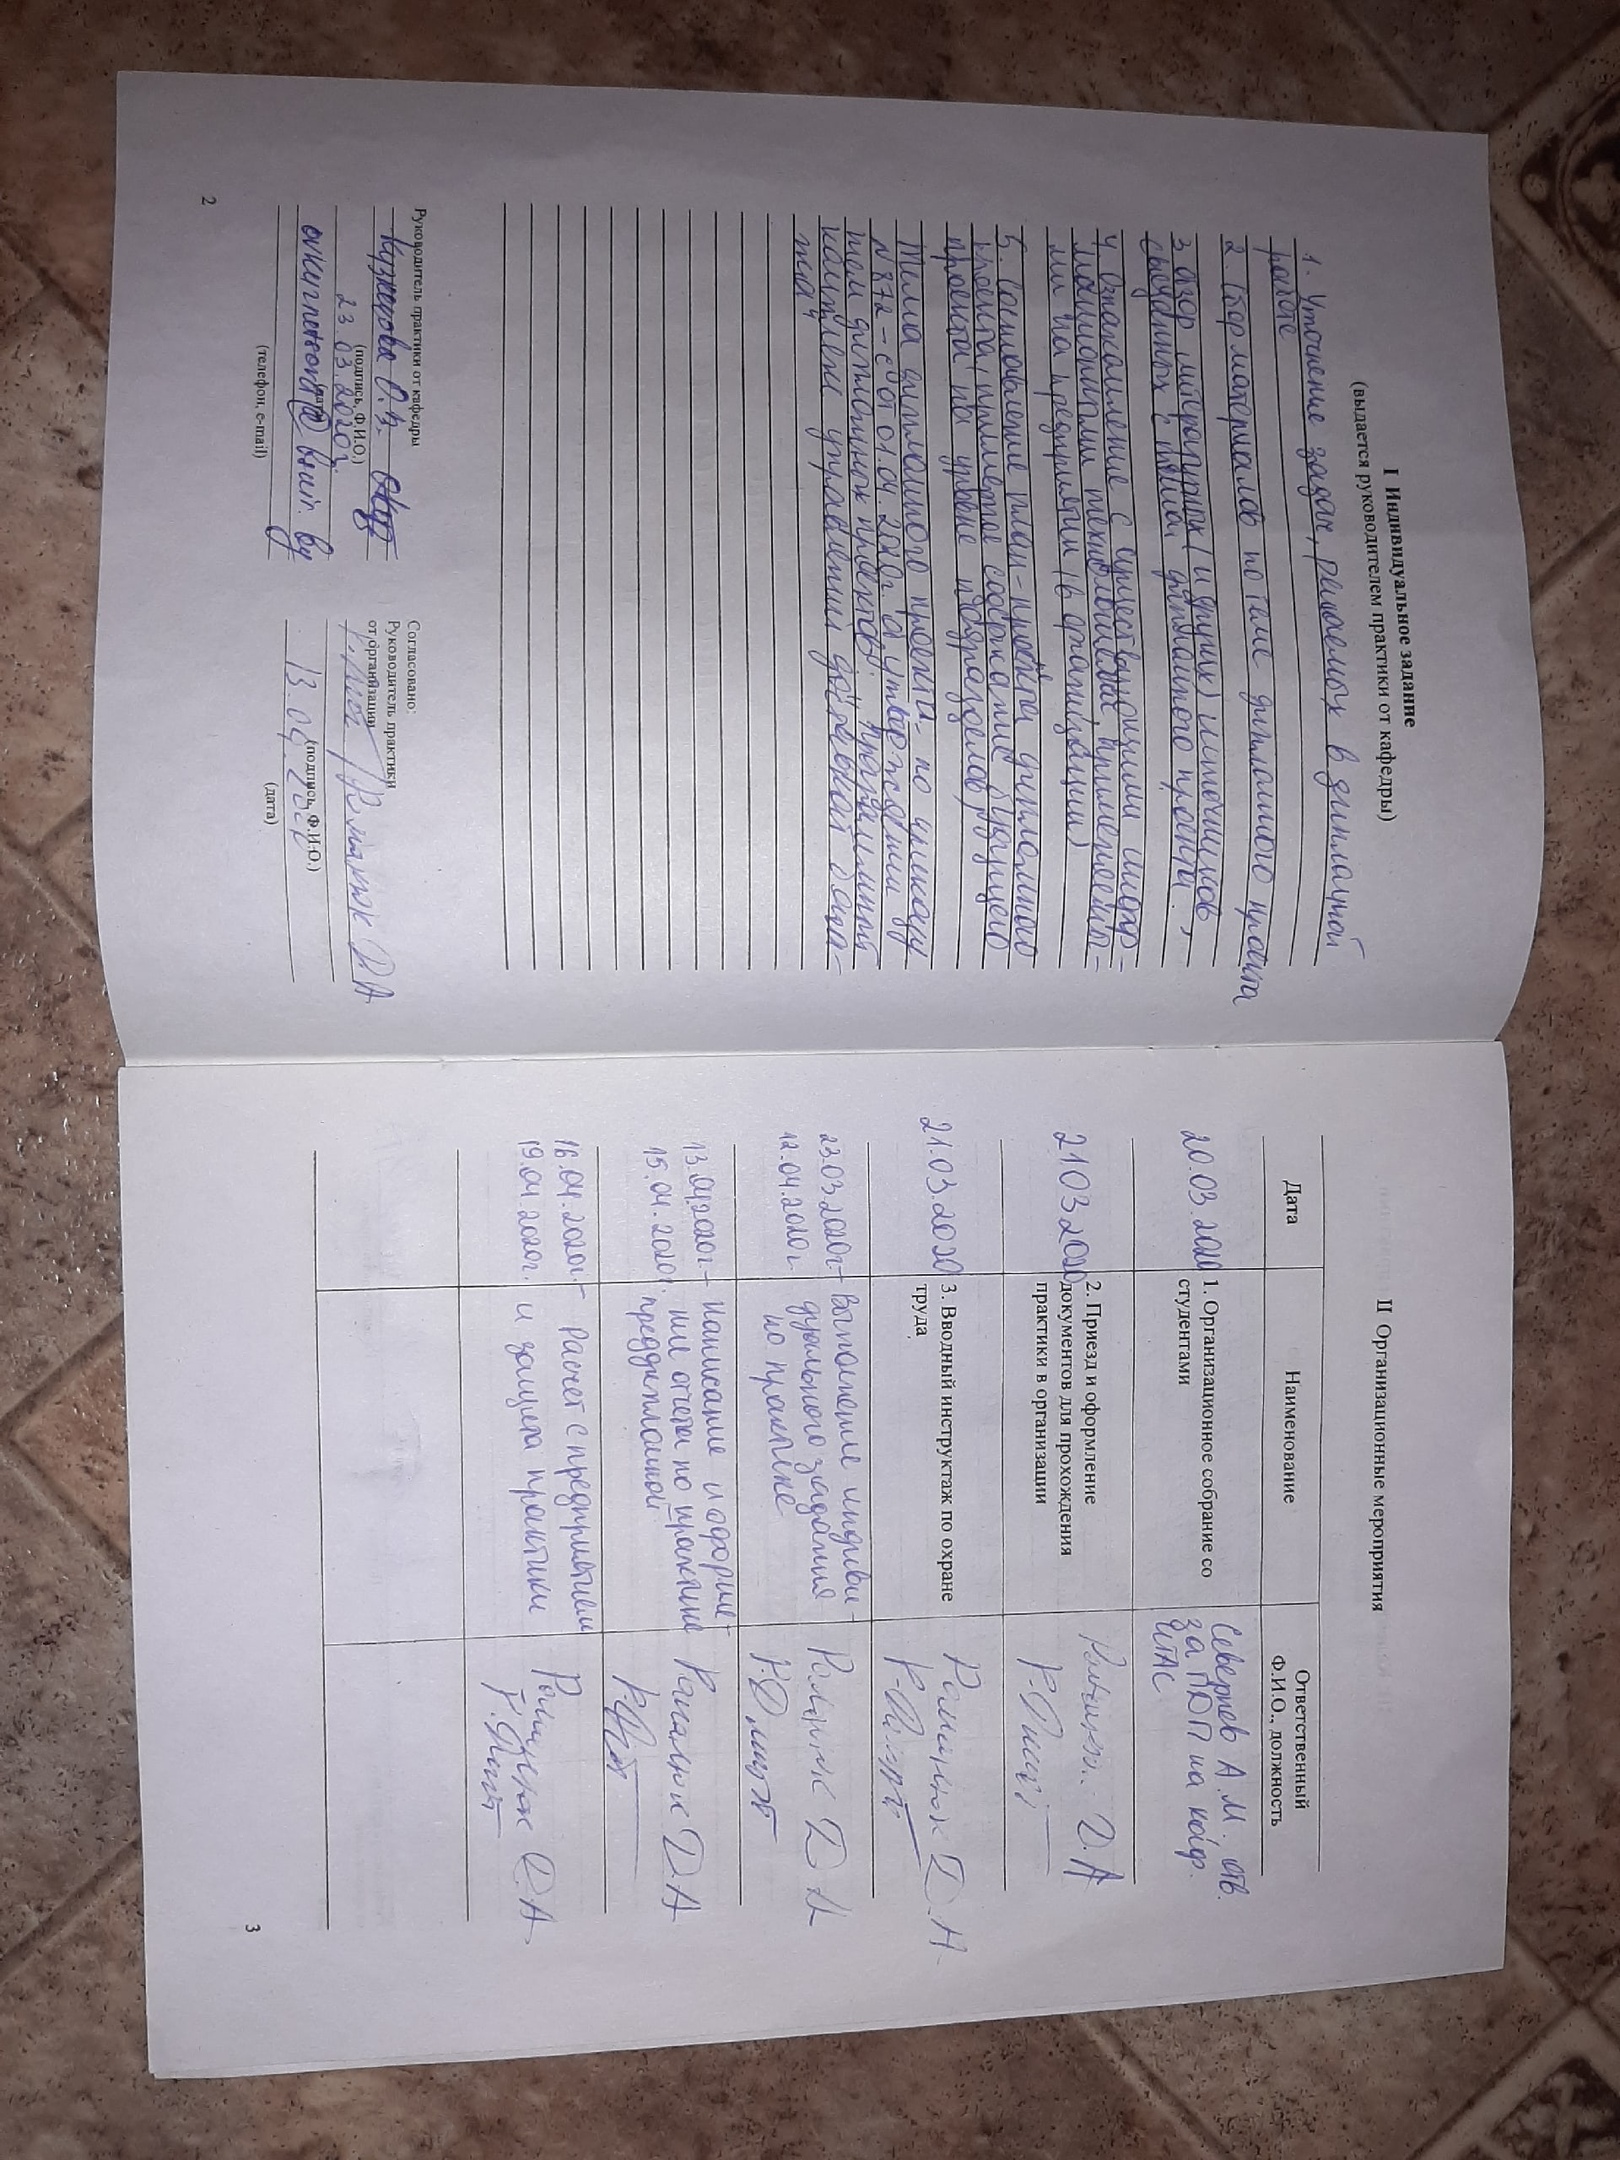 I Индивидуальное задание
(выдается руководителем практики от кафедры)
1. Уточнение задач, решаемых в дипломной
работе
2. Сбор материалов по теме дипломного проекта
3 Обзор литературных (и других) источников,
связанных с темой дипломного проекта.
4. Ознакомление с существующими инфор-
мационными технологиями, применяемы-
ми на предприятии (в организации)
5. Составление план-проекта дипломного
проекта, примерное содержание будущего
проекта на уровне подразделов)
Тема дипломного проекта по приказу
№872-с от 01.04.2020г. об утверждении
тем дипломных проектов: „Программный
комплекс управления доставкой бага-
жа"
Руководитель практики от кафедры
Кузнецова О.В.
(подпись, Ф.И.О.)
23.03.2020г.
(дата)
ovkuznetsova@bsuir.by
(телефон, e-mail)
Согласовано:
Руководитель практики
от организации
Романюк Д.А
(подпись, Ф.И.О.)
13.04.2020
(дата)
2
II Организационные мероприятия
Дата
Наименование
Ответственный
Ф.И.О., должность
20.03.2020
1. Организационное собрание со
студентами
Севернев А.М., отв.
за ПДП на каф.
ИТАС
21.03.2020
2. Приезд и оформление
документов для прохождения
практики в организации
Романюк Д.А
21.03.2020
3. Вводный инструктаж по охране
труда
Романюк Д.А.
23.03.2020г.-
12.04.2020г.
Выполнение индиви-
дуального задания
по практике
Романюк Д А
13.04.2020г.-
15.04.2020г.
Написание и оформле-
ние отчета по практике
преддипломной
Романюк Д.А
16.04.2020г.-
19.04.2020г.
Расчет с предприятием
и защита практики
Романюк Д.А.
3